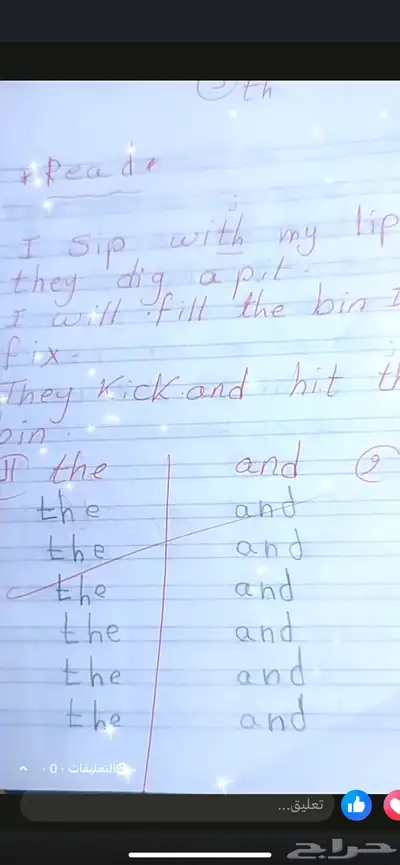 th
Read
I sip with my lip
they dig a pit.
I will fill the bin I
fix.
They kick and hit th
bin.
1 the and 2
the and
the and
the and
the and
the and
the and
التعليقات · 0
تعليق...
حراج